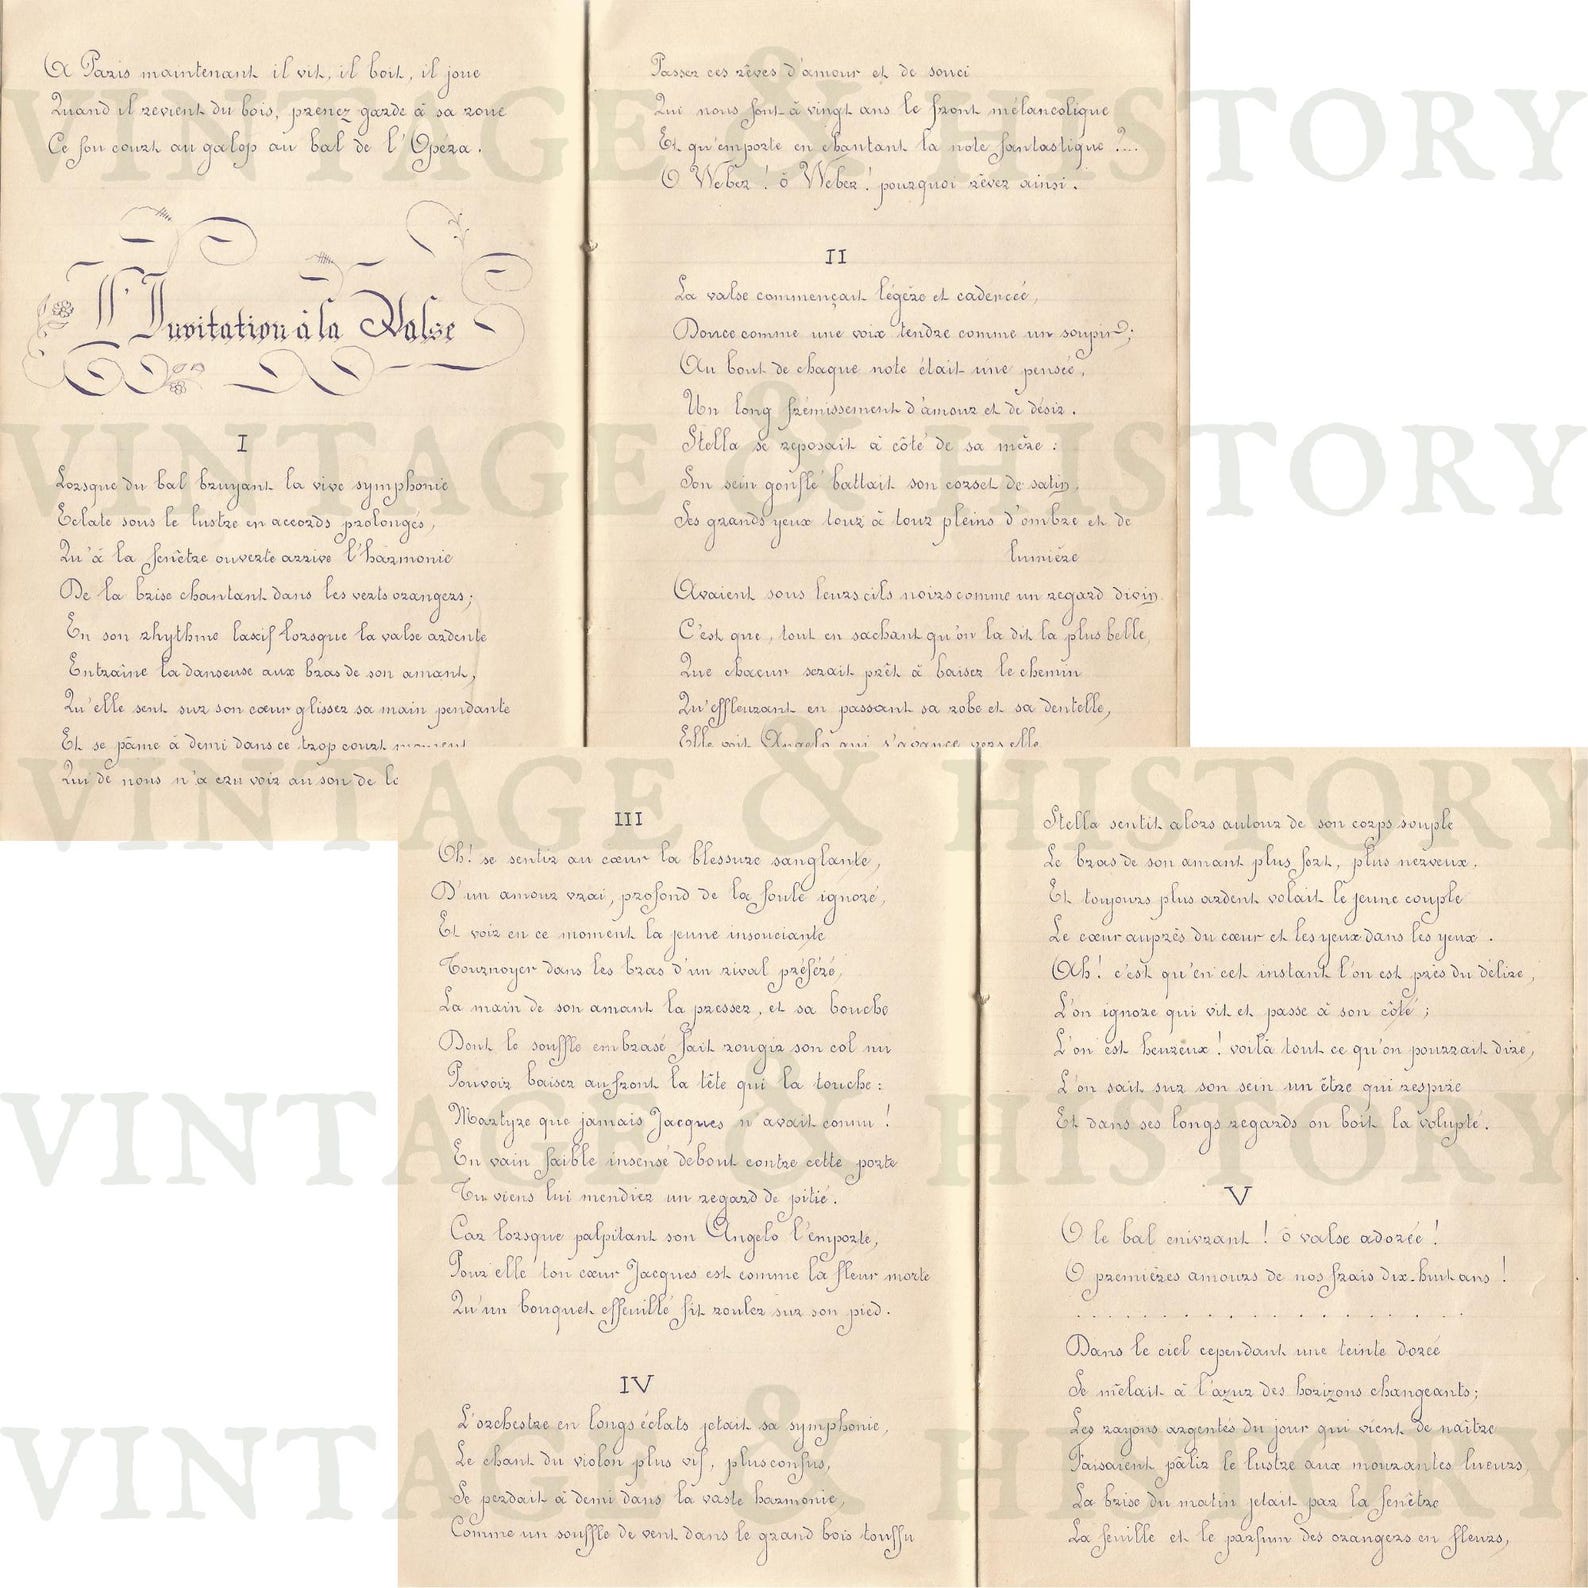 A Paris maintenant il vit, il boit, il joue
Quand il revient du bois, prenez garde à sa roue
Ce fou court au galop au bal de l'Opéra.
L'Invitation à la Valse
I
Lorsque du bal bruyant la vive symphonie
Eclate sous le lustre en accords prolongés,
Qu'à la fenêtre ouverte arrive l'harmonie
De la brise chantant dans les verts orangers;
En son rhythme lascif lorsque la valse ardente
Entraîne la danseuse aux bras de son amant,
Qu'elle sent sur son cœur glisser sa main pendante
Et se pâme à demi dans ce trop court moment
Qui de nous n'a cru voir au son de
Passer ces rêves d'amour et de souci
Qui nous font à vingt ans le front mélancolique
Et qu'emporte en chantant la note fantastique ?...
O Weber ! ô Weber ! pourquoi rêver ainsi.
II
La valse commençait légère et cadencée,
Douce comme une voix tendre comme un soupir;
Au bout de chaque note était une pensée,
Un long frémissement d'amour et de désir.
Stella se reposait à côté de sa mère :
Son sein gonflé battait son corset de satin,
Ses grands yeux tour à tour pleins d'ombre et de
lumière
Avaient sous leurs cils noirs comme un regard divin
C'est que, tout en sachant qu'on la dit la plus belle,
Que chacun serait prêt à baiser le chemin
Qu'effleurant en passant sa robe et sa dentelle,
Elle voit Angelo qui s'avance vers elle
III
Oh! se sentir au cœur la blessure sanglante,
D'un amour vrai, profond de la foule ignoré,
Et voir en ce moment la jeune insouciante
Tournoyer dans les bras d'un rival préféré,
La main de son amant la presser, et sa bouche
Dont le souffle embrasé fait rougir son col nu
Pouvoir baiser au front la tête qui la touche :
Martyre que jamais Jacques n'avait connu !
En vain faible insensé debout contre cette porte
Tu viens lui mendier un regard de pitié.
Car lorsque palpitant son Angelo l'emporte,
Pour elle ton cœur Jacques est comme la fleur morte
Qu'un bouquet effeuillé fit rouler sur son pied.
IV
L'orchestre en longs éclats jetait sa symphonie,
Le chant du violon plus vif, plus confus,
Se perdait à demi dans la vaste harmonie,
Comme un souffle de vent dans le grand bois touffu
Stella sentit alors autour de son corps souple
Le bras de son amant plus fort, plus nerveux.
Et toujours plus ardent volait le jeune couple
Le cœur auprès du cœur et les yeux dans les yeux.
Ah! c'est qu'en cet instant l'on est près du délire,
L'on ignore qui vit et passe à son côté ;
L'on est heureux ! voilà tout ce qu'on pourrait dire,
L'on sait sur son sein un être qui respire
Et dans ses longs regards on boit la volupté.
V
O le bal enivrant ! ô valse adorée !
O premières amours de nos frais dix-huit ans !
. . . . . . . . . . . . . .
Dans le ciel cependant une teinte dorée
Se mêlait à l'azur des horizons changeants;
Les rayons argentés du jour qui vient de naître
Faisaient pâlir le lustre aux mourantes lueurs,
La brise du matin jetait par la fenêtre
La feuille et le parfum des orangers en fleurs,
VINTAGE & HISTORY
VINTAGE & HISTORY
VINTAGE & HISTORY
VINTAGE & HISTORY
VINTAGE & HISTORY